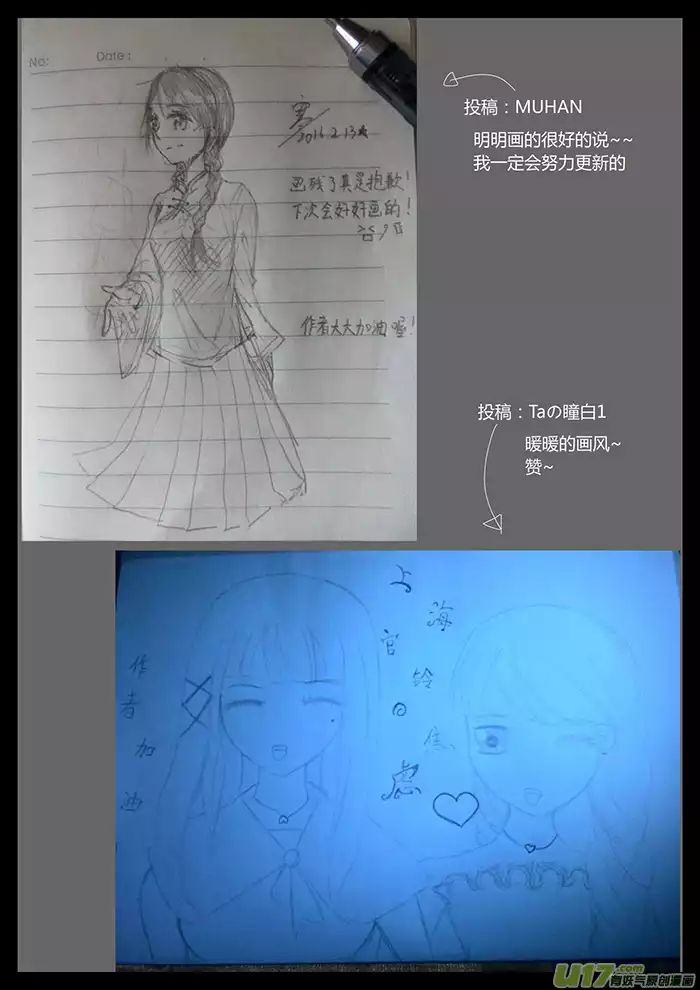 No:
Date:
2016.2.13
画残了真是抱歉！
下次会好好画的！
作者大大加油喔！
投稿：MUHAN
明明画的很好的说~~
我一定会努力更新的
投稿：Taの瞳白1
暖暖的画风~
赞~
上官の虑
海铃焦
作者加油
U17.com
有妖气原创漫画